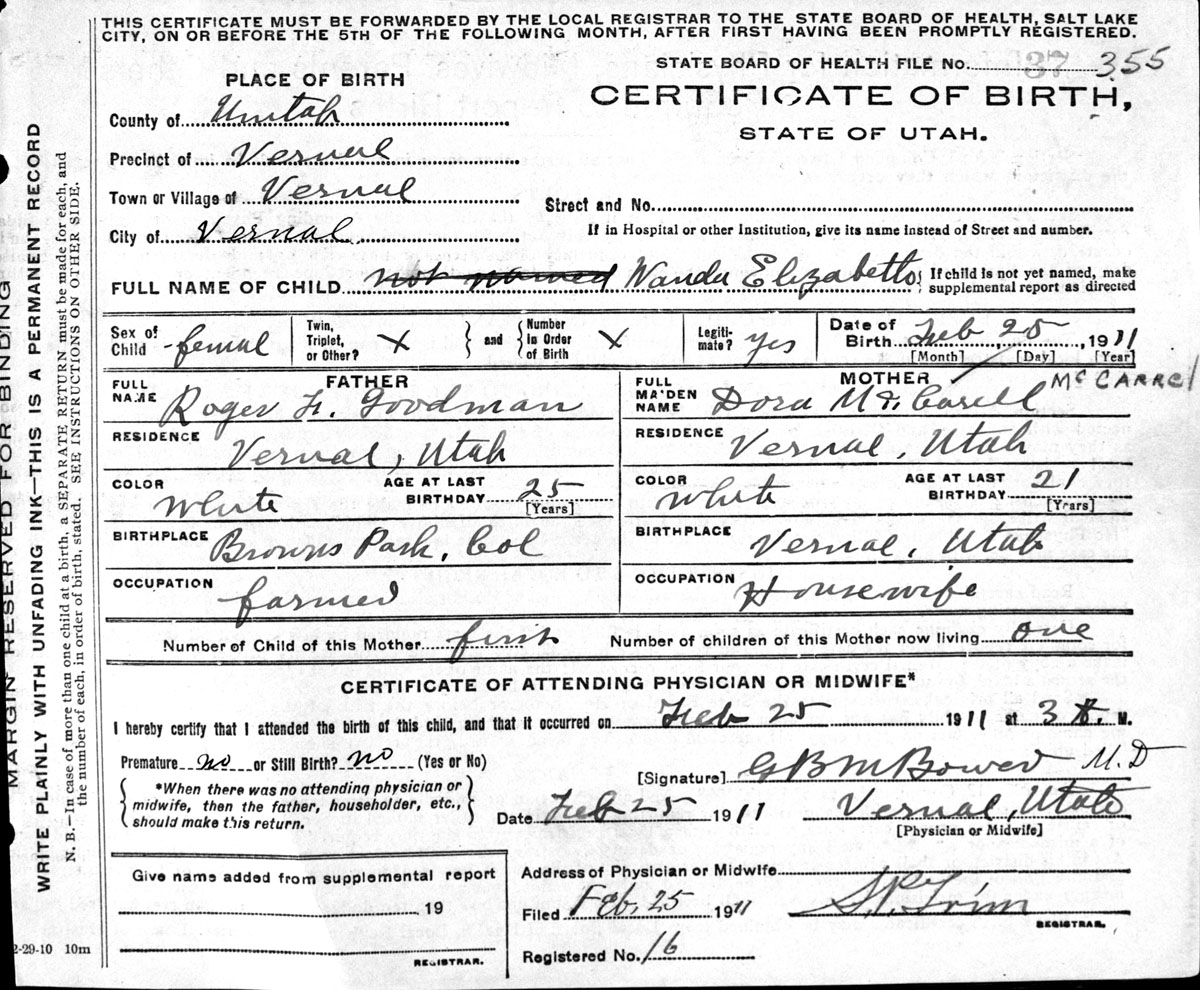 THIS CERTIFICATE MUST BE FORWARDED BY THE LOCAL REGISTRAR TO THE STATE BOARD OF HEALTH, SALT LAKE
CITY, ON OR BEFORE THE 5TH OF THE FOLLOWING MONTH, AFTER FIRST HAVING BEEN PROMPTLY REGISTERED.
STATE BOARD OF HEALTH FILE No. 37 355
PLACE OF BIRTH
CERTIFICATE OF BIRTH,
STATE OF UTAH.
County of Uintah
Precinct of Vernal
Town or Village of Vernal
Street and No.
City of Vernal
If in Hospital or other Institution, give its name instead of Street and number.
FULL NAME OF CHILD not named Wanda Elizabeth { If child is not yet named, make
supplemental report as directed
Sex of Child femal Twin, Triplet, or Other? X and Number in Order of Birth X Legiti-mate? yes Date of Birth Feb 25 1911
[Month] [Day] [Year]
FATHER
MOTHER McCARREL
FULL NAME Roger F. Goodman
FULL MAIDEN NAME Dora
RESIDENCE Vernal, Utah
RESIDENCE Vernal, Utah
COLOR White AGE AT LAST BIRTHDAY 25 [Years]
COLOR White AGE AT LAST BIRTHDAY 21 [Years]
BIRTHPLACE Browns Park, Col
BIRTHPLACE Vernal, Utah
OCCUPATION farmer
OCCUPATION Housewife
Number of Child of this Mother first Number of children of this Mother now living one
CERTIFICATE OF ATTENDING PHYSICIAN OR MIDWIFE*
I hereby certify that I attended the birth of this child, and that it occurred on Feb 25 1911 at 3 M.
Premature no or Still Birth? no (Yes or No)
*When there was no attending physician or
midwife, then the father, householder, etc.,
should make this return.
[Signature] M.D
Date Feb 25 1911 Vernal, Utah
[Physician or Midwife]
Give name added from supplemental report
19
REGISTRAR.
Address of Physician or Midwife
Filed Feb, 25 1911
REGISTRAR.
Registered No. 16
MARGIN RESERVED FOR BINDING
WRITE PLAINLY WITH UNFADING INK—THIS IS A PERMANENT RECORD
N. B.—In case of more than one child at a birth, a SEPARATE RETURN must be made for each, and
the number of each, in order of birth, stated. SEE INSTRUCTIONS ON OTHER SIDE.
2-29-10 10m